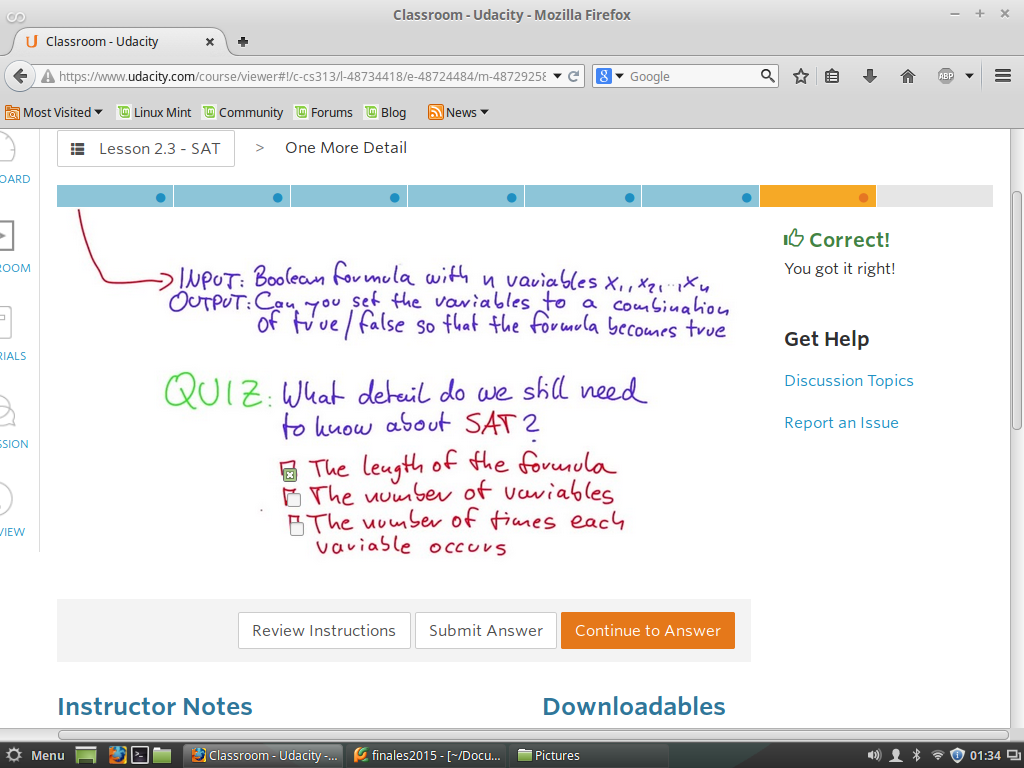 Classroom - Udacity - Mozilla Firefox
Classroom - Udacity
https://www.udacity.com/course/viewer#!/c-cs313/l-48734418/e-48724484/m-48729258
Google
ABP
Most Visited
Linux Mint
Community
Forums
Blog
News
Lesson 2.3 - SAT > One More Detail
OARD
ROOM
RIALS
SSION
VIEW
INPUT: Boolean formula with n variables x1, x2, ..., xn
OUTPUT: Can you set the variables to a combination
of true/false so that the formula becomes true
QUIZ: What detail do we still need
to know about SAT?
The length of the formula
The number of variables
The number of times each
variable occurs
Correct!
You got it right!
Get Help
Discussion Topics
Report an Issue
Review Instructions
Submit Answer
Continue to Answer
Instructor Notes
Downloadables
Menu
Classroom - Udacity -...
finales2015 - [~/Docu...
Pictures
01:34